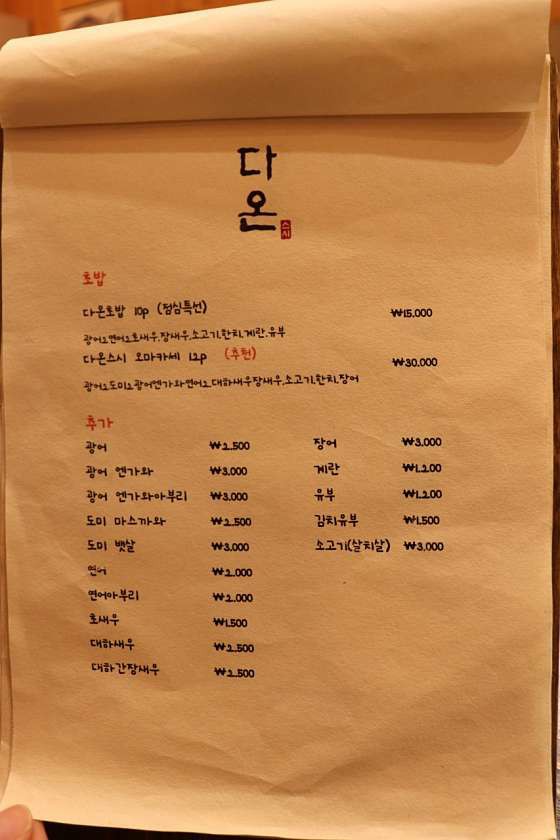 다
온
스시
초밥
다온초밥 10p (점심특선) ₩15.000
광어2,연어2,초새우,장새우,소고기,한치,계란,유부
다온스시 오마카세 12p (추천) ₩30.000
광어2,도미2,광어엔가와,연어2,대하새우,장새우,소고기,한치,장어
추가
광어 ₩2.500 장어 ₩3.000
광어 엔가와 ₩3.000 계란 ₩1.200
광어 엔가와아부리 ₩3.000 유부 ₩1.200
도미 마스까와 ₩2.500 김치유부 ₩1.500
도미 뱃살 ₩3.000 소고기(살치살) ₩3.000
연어 ₩2.000
연어아부리 ₩2.000
초새우 ₩1.500
대하새우 ₩2.500
대하간장새우 ₩2.500